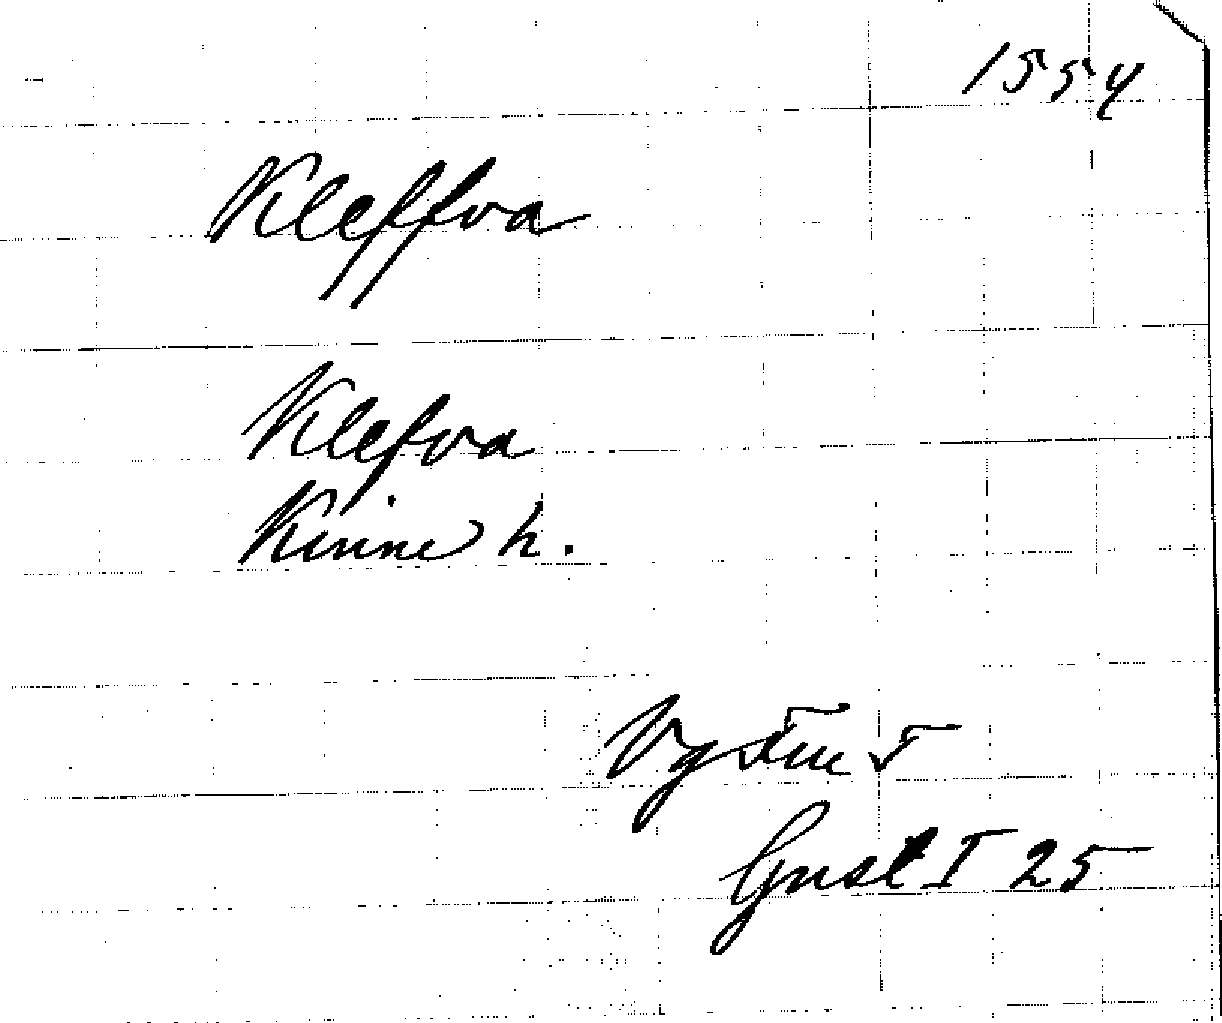 1554
Kleffva
Klefva
Kinne h.
Vg
Gust I 25